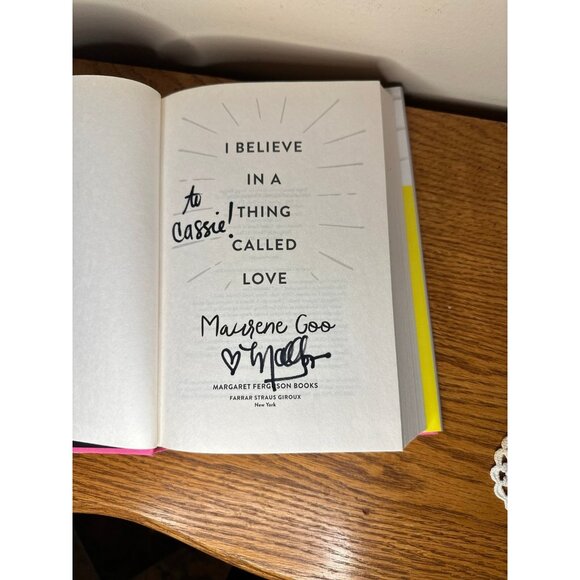 I BELIEVE
IN A
to
Cassie!
THING
CALLED
LOVE
Maurene Goo
MARGARET FERGUSON BOOKS
FARRAR STRAUS GIROUX
New York